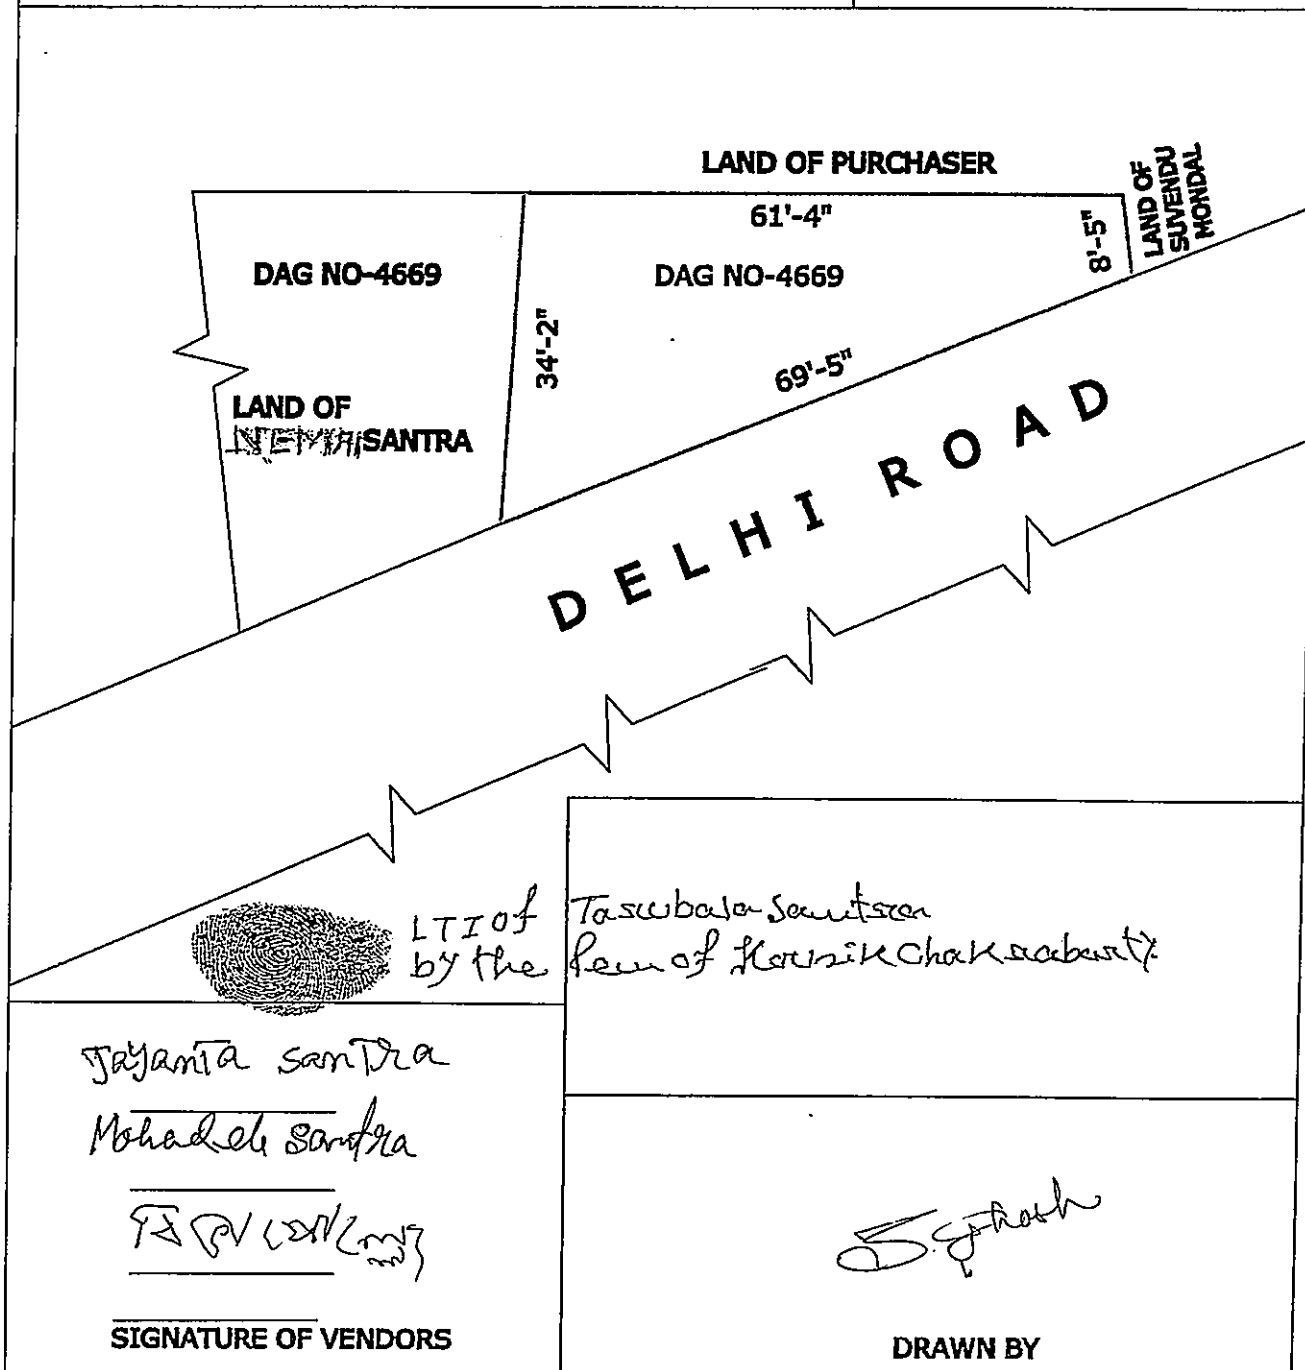 LAND OF PURCHASER
61'-4"
8'-5"
LAND OF
SUVENDU
MONDAL
DAG NO-4669
DAG NO-4669
34'-2"
69'-5"
LAND OF
SANTRA
DELHI ROAD
LTI of
by the Pen of Kousik Chakraborty
Jayanta Santra
Santra
SIGNATURE OF VENDORS
S. Ghosh
DRAWN BY